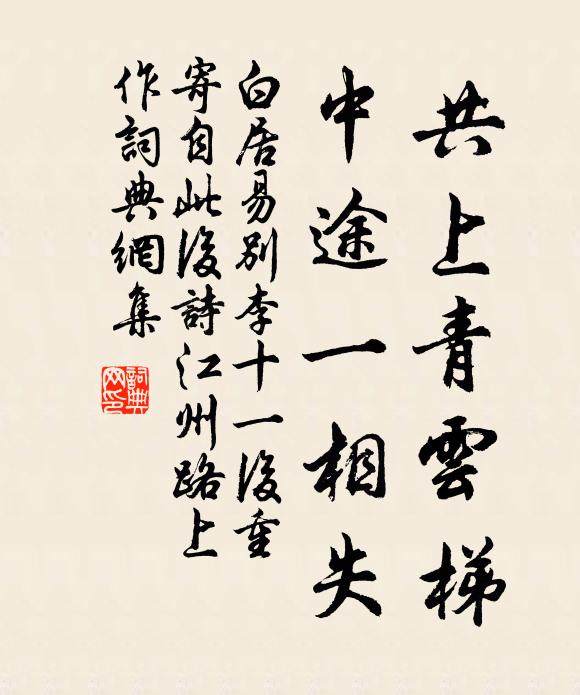 共上青雲梯
中途一相失
白居易別李十一後重
寄自此後詩江州路上
作詞典網集
詞典
网印